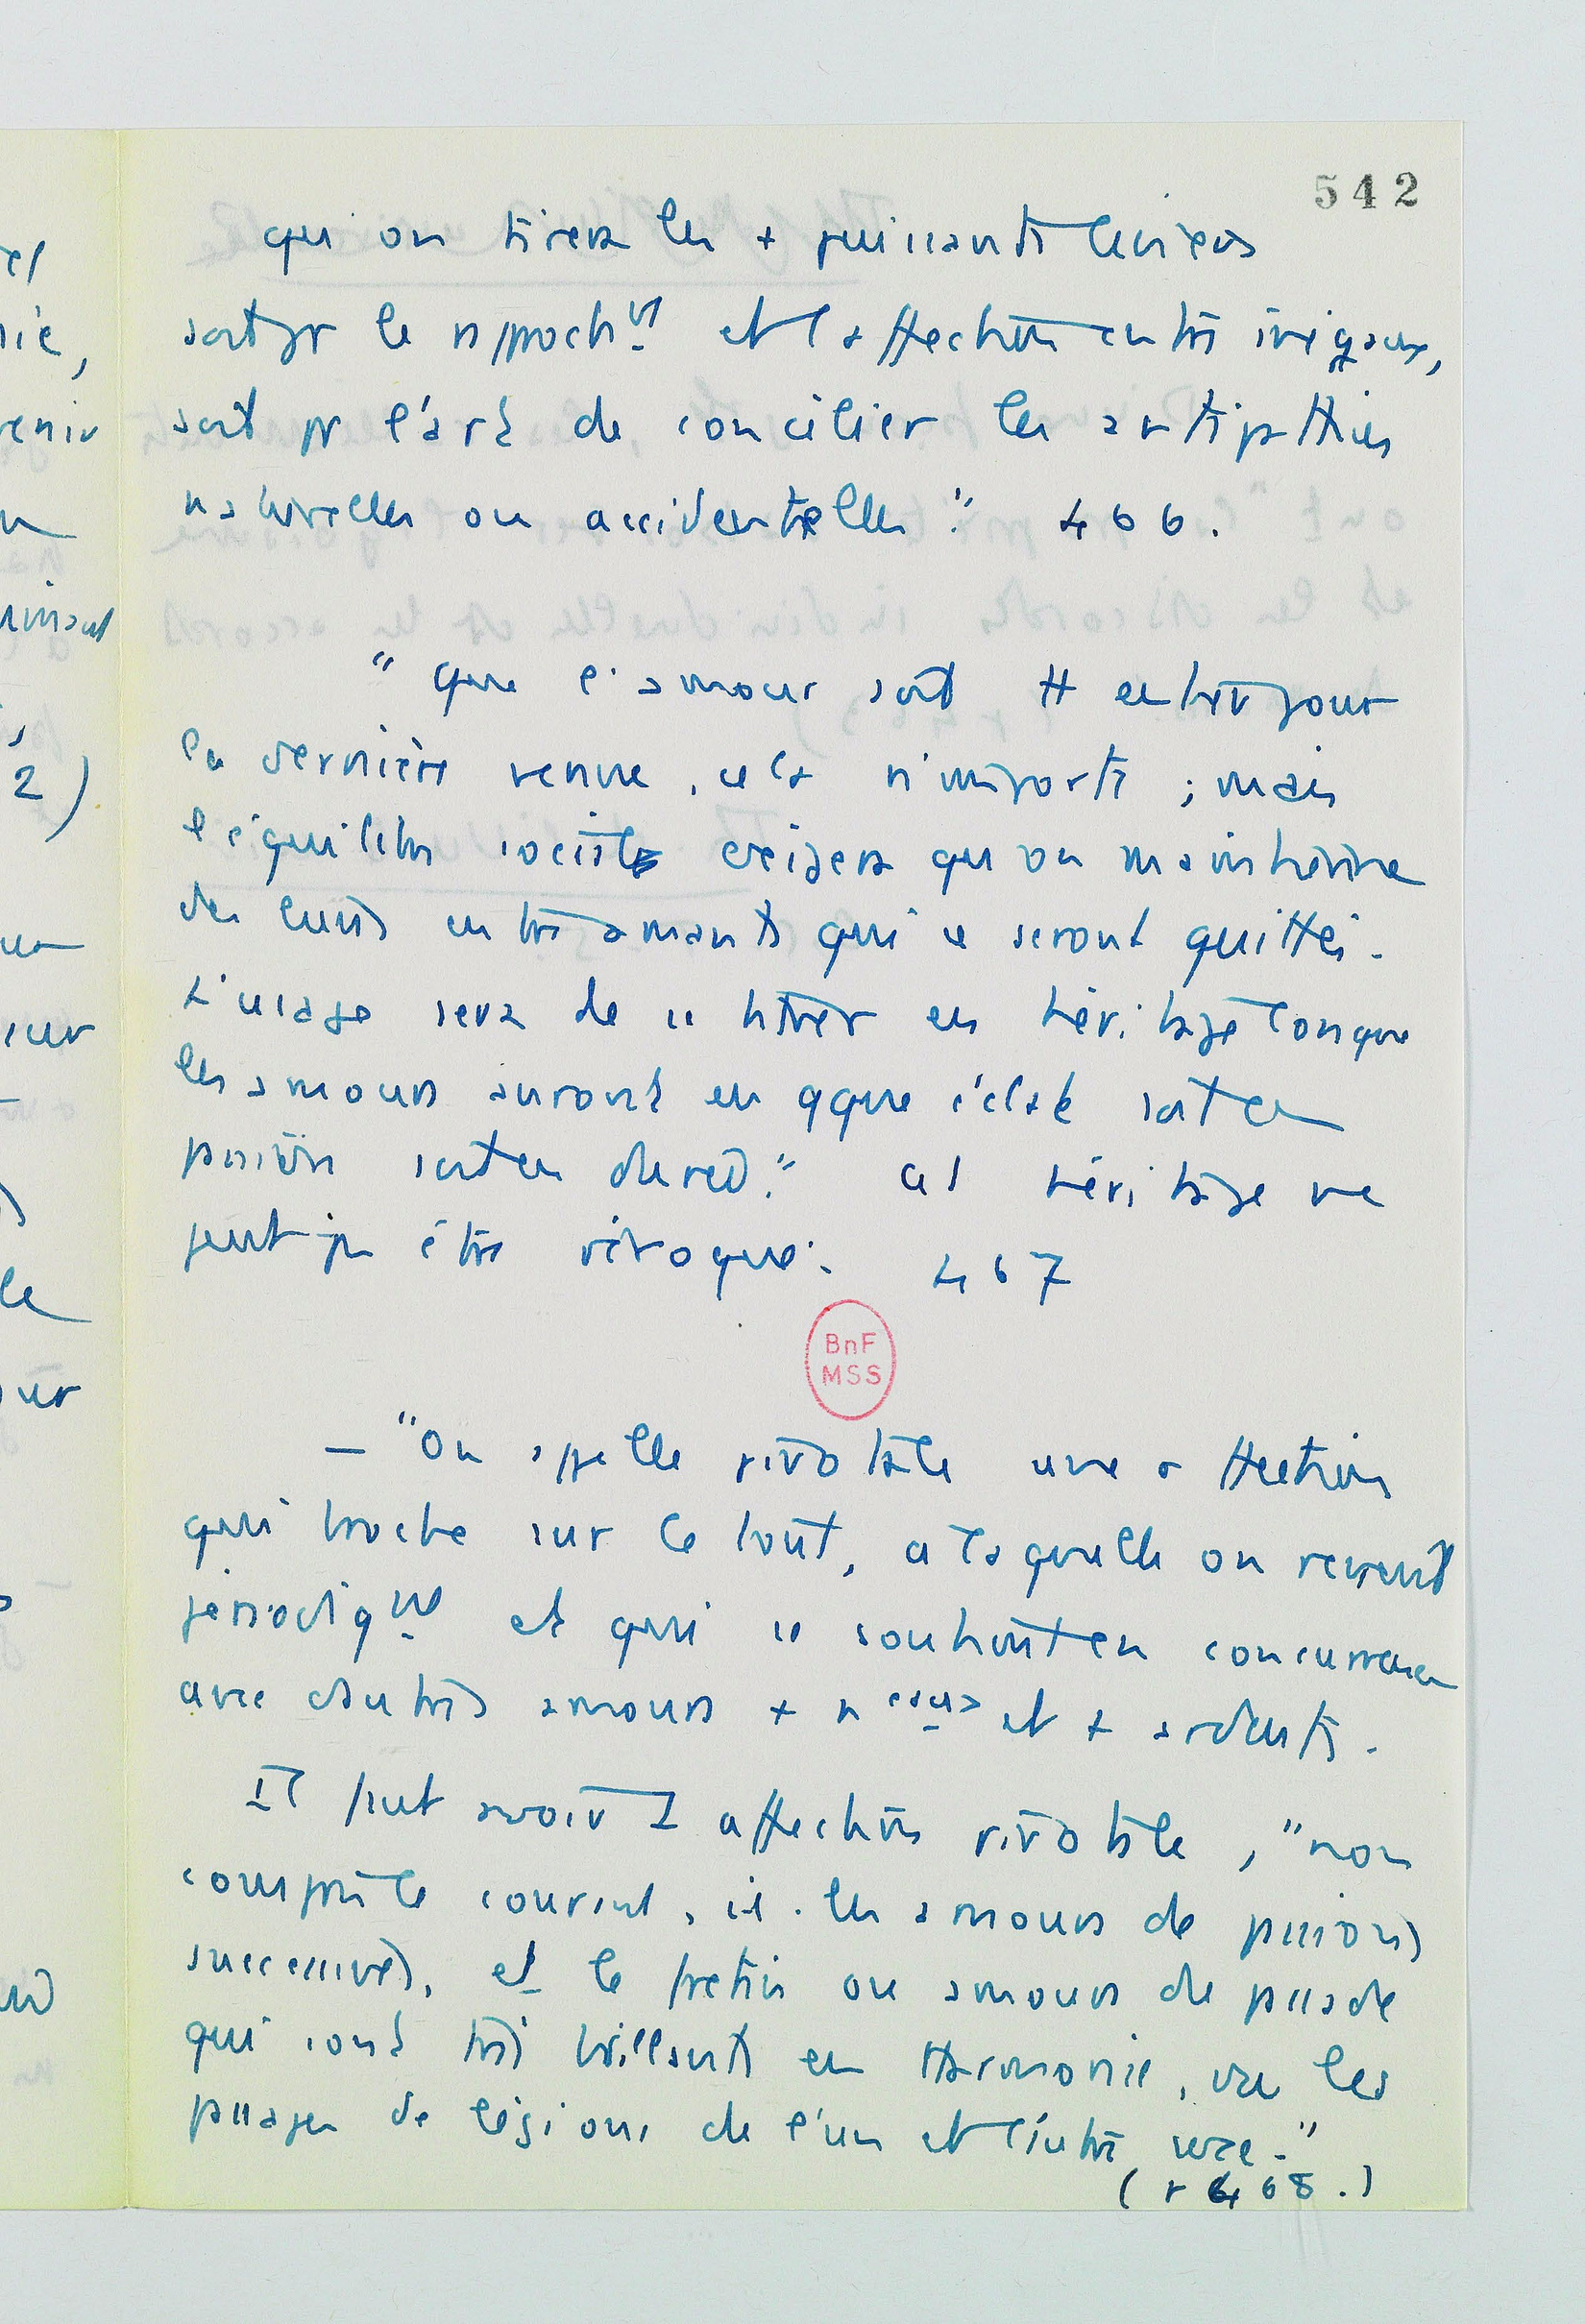 542
qu'on tirera les + puissants leviers
soit pr le rapproch.nt et l'affection entre inégaux,
soit pr l'art de concilier les antipathies
naturelles ou accidentelles." 466.
"que l'amour soit tt entier pour
la dernière venue, cela n'importe ; mais
l'équilibre sociétaire exigera qu'on maintienne
des liens entre amants qui se seront quittés.
L'usage sera de se titrer en héritage lorsque
les amours auront eu qque éclat soit en
passion soit en durée." Cet héritage ne
peut pas être révoqué. 467
BnF
MSS
— "On appelle pivotale une affection
qui broche sur le tout, à laquelle on revient
périodiq.nt et qui se soutient en concurrence
avec d'autres amours + nveaux et + ardents.
Il peut avoir 1 affection pivotale, "non
compris le courant, i.e. les amours de passions
successives, et le fretin ou amours de passade
qui sont très brillants en Harmonie, vu les
passages de légions de l'un et l'autre sexe."
(p 468.)
el
enir
2)
sur
le
our